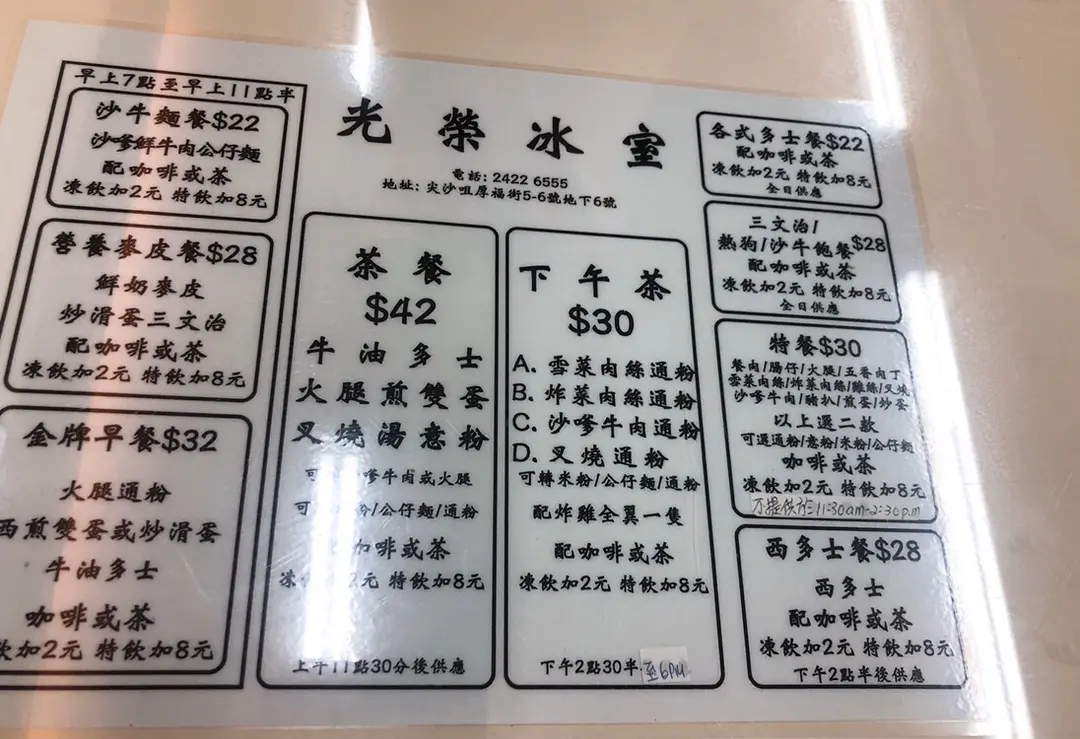 早上7點至早上11點半
沙牛麵餐$22
沙爹鮮牛肉公仔麵
配咖啡或茶
凍飲加2元 特飲加8元
營養麥皮餐$28
鮮奶麥皮
炒滑蛋三文治
配咖啡或茶
凍飲加2元 特飲加8元
金牌早餐$32
火腿通粉
西煎雙蛋或炒滑蛋
牛油多士
咖啡或茶
飲加2元 特飲加8元
光榮冰室
電話: 2422 6555
地址: 尖沙咀厚福街5-6號地下6號
茶餐
$42
牛油多士
火腿煎雙蛋
叉燒湯意粉
可 爹牛肉或火腿
可 粉/公仔麵/通粉
咖啡或茶
凍 2元 特飲加8元
上午11點30分後供應
下午茶
$30
A. 雪菜肉絲通粉
B. 炸菜肉絲通粉
C. 沙爹牛肉通粉
D. 叉燒通粉
可轉米粉/公仔麵/通粉
配炸雞全翼一隻
配咖啡或茶
凍飲加2元 特飲加8元
下午2點30半 至6PM
各式多士餐$22
配咖啡或茶
凍飲加2元 特飲加8元
全日供應
三文治/
熱狗/沙牛飽餐$28
配咖啡或茶
凍飲加2元 特飲加8元
全日供應
特餐$30
餐肉/腸仔/火腿/五香肉丁
雪菜肉絲/炸菜肉絲/雞絲/叉燒
沙爹牛肉/豬扒/煎蛋/炒蛋
以上選二款
可選通粉/意粉/米粉/公仔麵
咖啡或茶
凍飲加2元 特飲加8元
不提供於11:30am-2:30p.m
西多士餐$28
西多士
配咖啡或茶
凍飲加2元 特飲加8元
下午2點半後供應